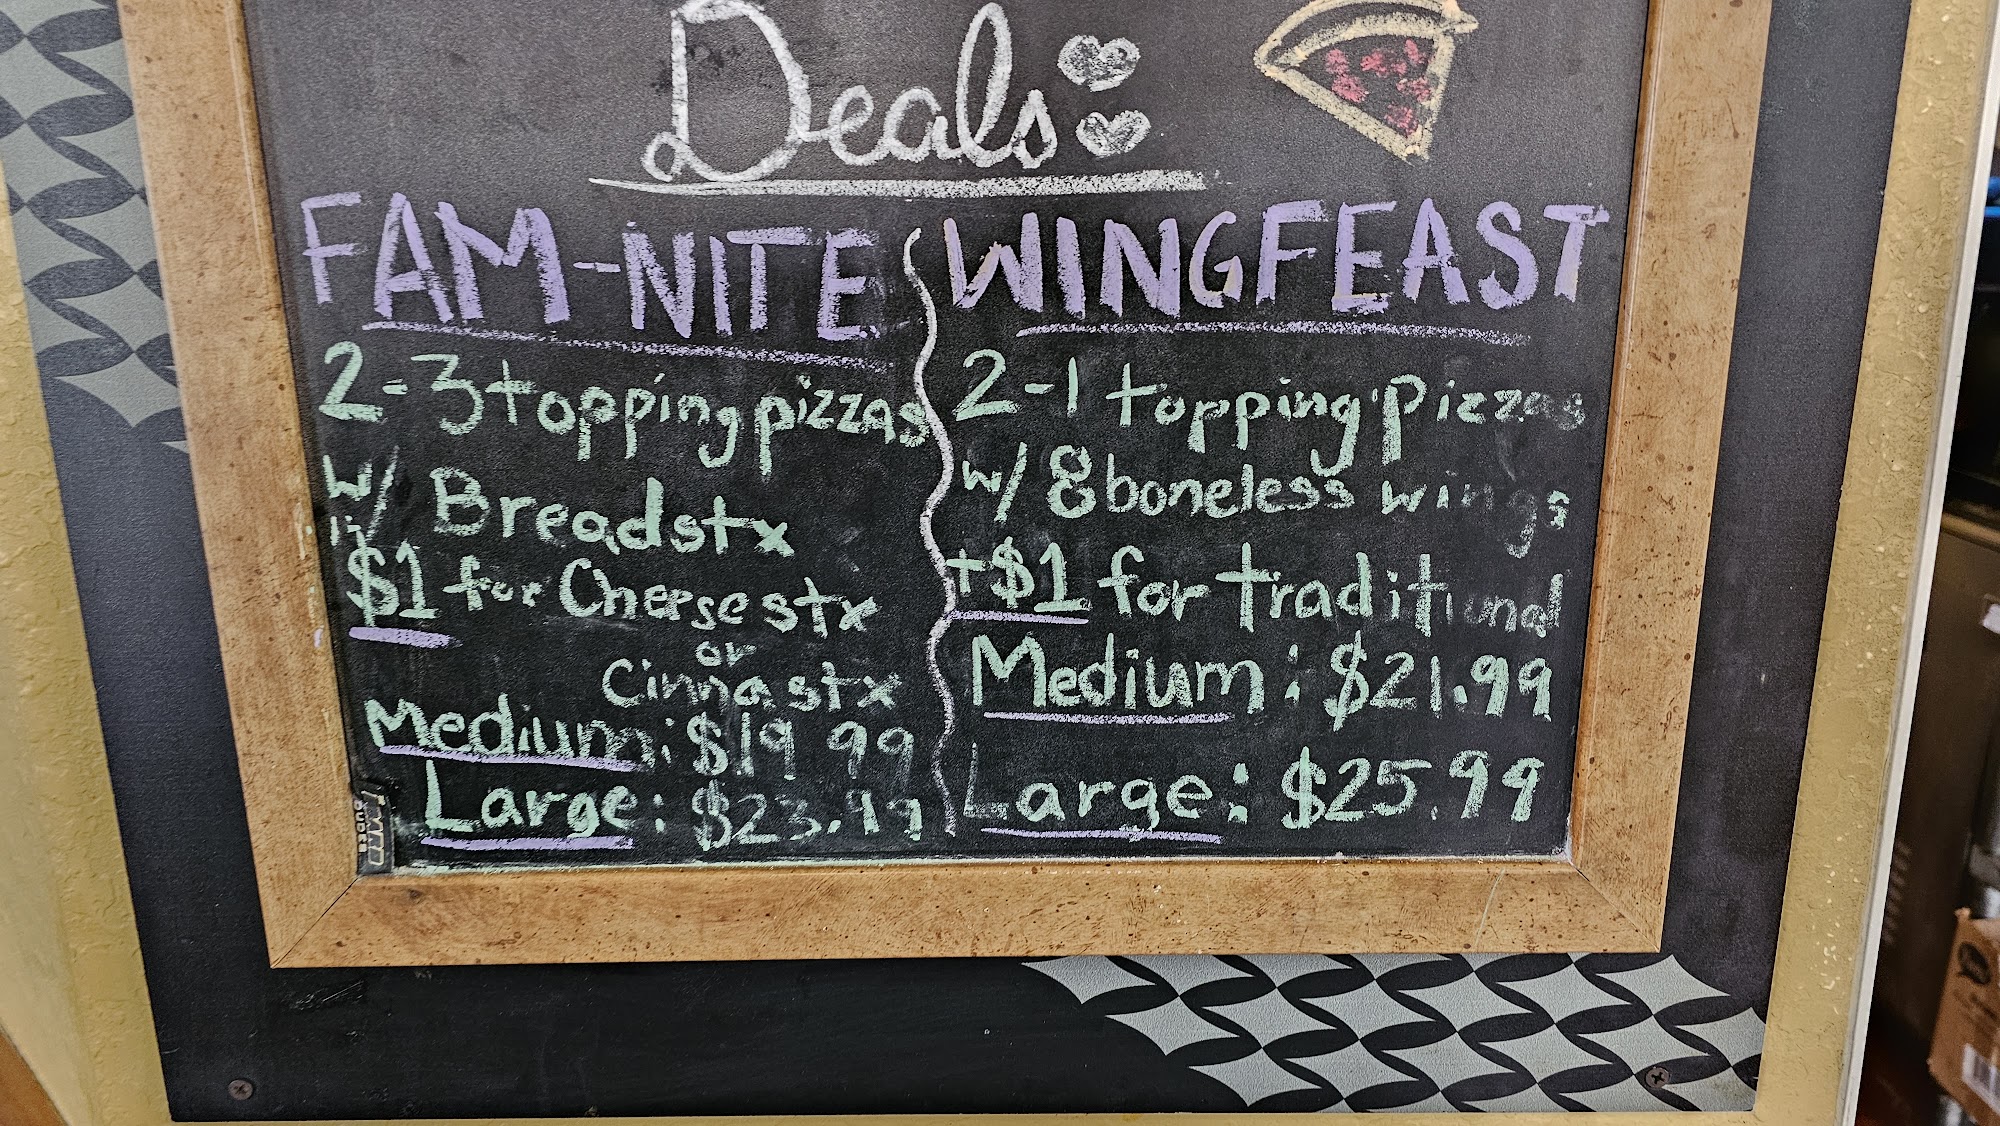 Deals
FAM-NITE
2-3 topping pizzas
w/ Breadstx
$1 for Cheese stx
or
Cinna stx
Medium: $19 99
Large: $23.99
WINGFEAST
2-1 topping pizzas
w/ 8 boneless wings
+$1 for traditional
Medium: $21.99
Large: $25.99